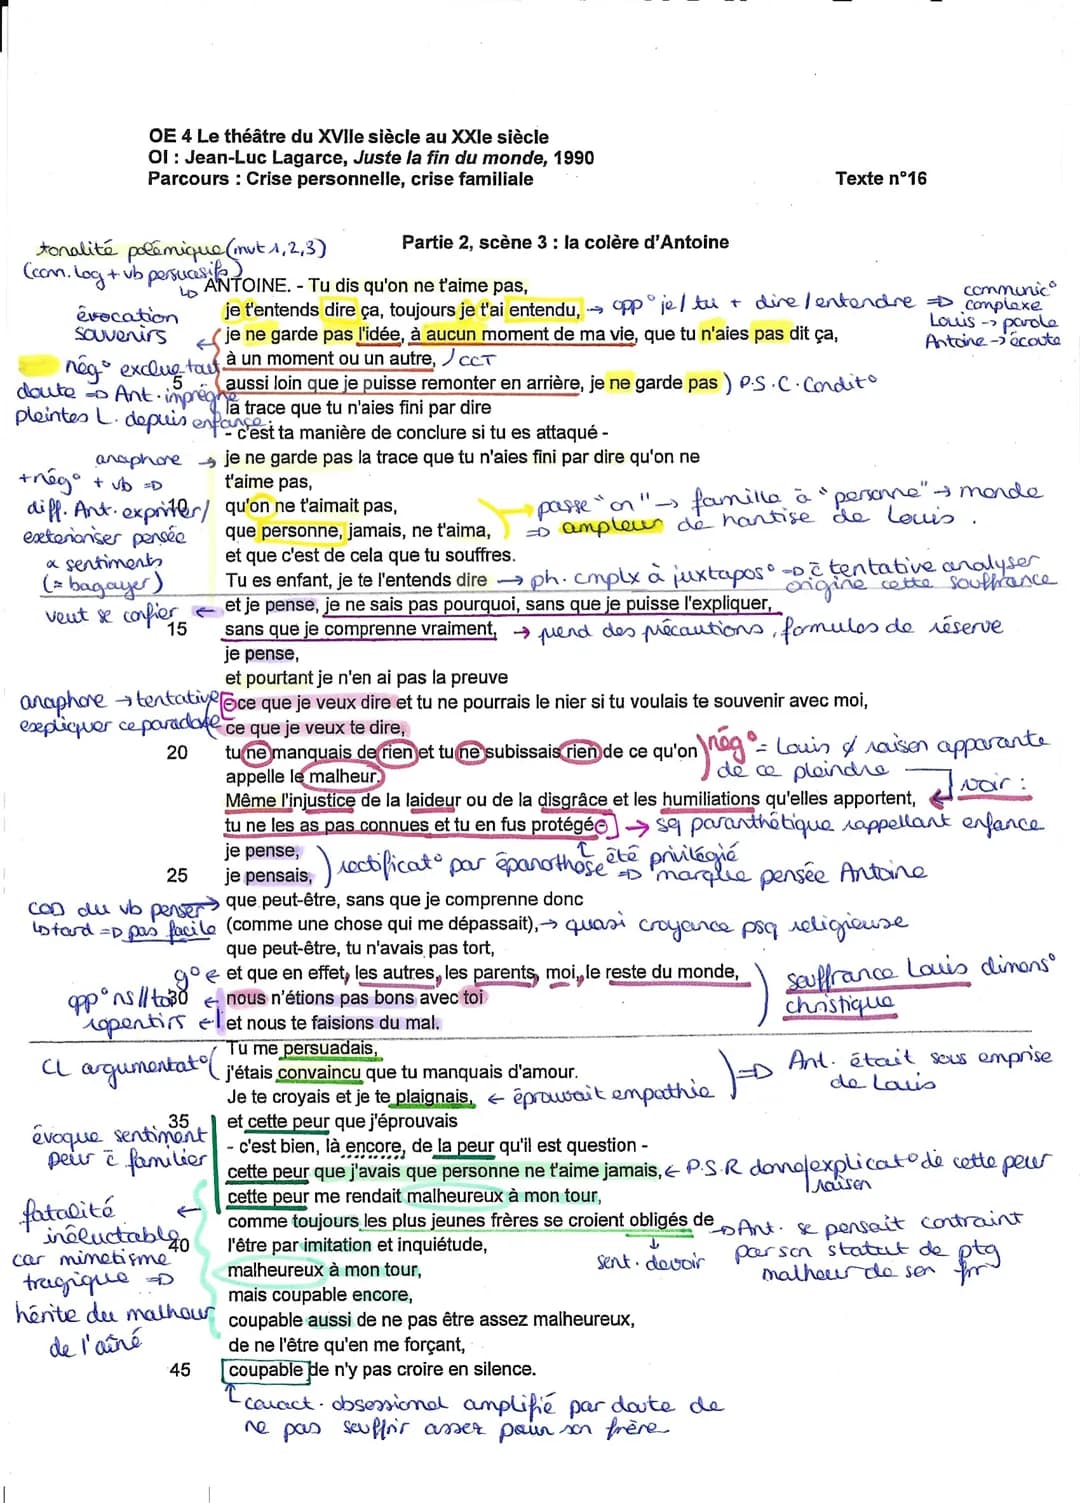 OE 4 Le théâtre du XVIIe siècle au XXIe siècle
OI : Jean-Luc Lagarce, Juste la fin du monde, 1990
Parcours : Crise personnelle, crise familiale
Texte n°16
tonalité polémique (mvt 1,2,3)
Partie 2, scène 3 : la colère d'Antoine
(conn. log + vb persuasifs)
ANTOINE. - Tu dis qu'on ne t'aime pas,
évocation souvenirs
je t'entends dire ça, toujours je t'ai entendu, → opp° je/tu + dire/entendre => communic° complexe
Louis -> parole
Antoine -> écoute
je ne garde pas l'idée, à aucun moment de ma vie, que tu n'aies pas dit ça,
nég° exclue tout doute => Ant. imprégné plaintes L. depuis enfance.
à un moment ou un autre, / CCT
5
aussi loin que je puisse remonter en arrière, je ne garde pas ) P.S.C. Condit°
la trace que tu n'aies fini par dire
- c'est ta manière de conclure si tu es attaqué -
anaphore → je ne garde pas la trace que tu n'aies fini par dire qu'on ne
+ nég° + vb =>
t'aime pas,
diff. Ant. exprimer/
10
qu'on ne t'aimait pas,
passe "on" → famille à "personne" → monde
extérioriser pensée
que personne, jamais, ne t'aima,
=> ampleur de hantise de Louis.
& sentiments
et que c'est de cela que tu souffres.
(= bagayer)
Tu es enfant, je te l'entends dire → ph. cmplx à juxtapos° => tentative analyser origine cette souffrance
veut se confier ← et je pense, je ne sais pas pourquoi, sans que je puisse l'expliquer,
15
sans que je comprenne vraiment, → prend des précautions, formules de réserve
je pense,
et pourtant je n'en ai pas la preuve
anaphore → tentative expliquer ce paradoxe
- ce que je veux dire et tu ne pourrais le nier si tu voulais te souvenir avec moi,
ce que je veux te dire,
20
tu ne manquais de rien et tu ne subissais rien de ce qu'on
appelle le malheur.
nég° = Louis raison apparante de ce pleindre
voir :
Même l'injustice de la laideur ou de la disgrâce et les humiliations qu'elles apportent,
tu ne les as pas connues et tu en fus protégé - → sq paranthétique rappellant enfance
été privilégié
je pense,
25
je pensais,
rectificat° par épanorthose => marque pensée Antoine
COD du vb penser → que peut-être, sans que je comprenne donc
+ tard => pas facile (comme une chose qui me dépassait), → quasi croyance psq religieuse
que peut-être, tu n'avais pas tort,
g° ← et que en effet, les autres, les parents, moi, le reste du monde,
souffrance Louis dimens° christique
opp° ns // toi
30
← nous n'étions pas bons avec toi
repentirs ← et nous te faisions du mal.
Tu me persuadais,
CL argumentat°
j'étais convaincu que tu manquais d'amour.
=> Ant. était sous emprise de Louis
Je te croyais et je te plaignais, ← éprouvait empathie
35
et cette peur que j'éprouvais
évoque sentiment peur c̄ familier
- c'est bien, là encore, de la peur qu'il est question -
cette peur que j'avais que personne ne t'aime jamais, ← P.S.R donne explicat° de cette peur
raison
cette peur me rendait malheureux à mon tour,
fatalité inéluctable
comme toujours les plus jeunes frères se croient obligés de
→ Ant. se pensait contraint par son statut de ptg malheur de son fr
40
l'être par imitation et inquiétude,
sent. devoir
car mimetisme tragique =>
malheureux à mon tour,
mais coupable encore,
hérite du malheur de l'aîné
coupable aussi de ne pas être assez malheureux,
de ne l'être qu'en me forçant,
45
coupable de n'y pas croire en silence.
caract. obsessionel amplifié par doute de
ne pas souffrir assez pour son frère.